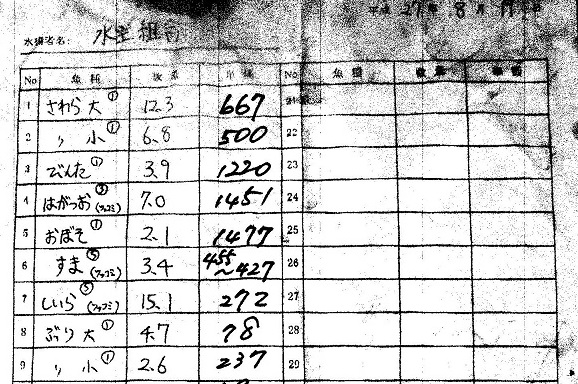 27年 8月 17日
水揚者名: 水主組合
No 魚種 数量 単価 No 魚種 数量 単価
1 さわら 大 ① 12.3 667
2 〃 小 ① 6.8 500 22
3 でんた ① 3.9 1220 23
4 はがつお ③ (フッコミ) 7.0 1451 24
5 おぼそ ① 2.1 1477 25
6 すま ⑤ (フッコミ) 3.4 455～427 26
7 しいら ⑤ (フッコミ) 15.1 272 27
8 ぶり 大 ① 4.7 78 28
9 〃 小 ① 2.6 237 29